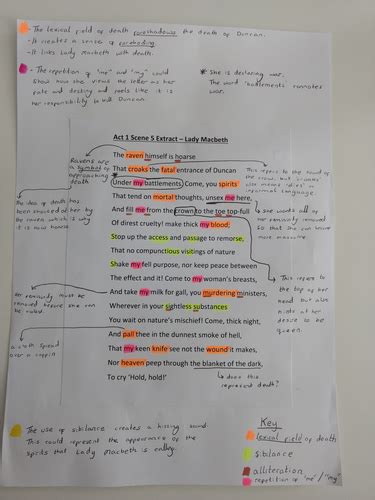 - The lexical field of death foreshadows the death of Duncan.
- It creates a sense of foreboding.
- It links Lady Macbeth with death.
- The repetition of "me" and "my" could
show how she views the letter as her
fate and destiny and feels like it is
her responsibility to kill Duncan.
* She is declaring war.
The word 'battlements' connotes
war.
Act 1 Scene 5 Extract – Lady Macbeth
Ravens are
a symbol of
approaching
death
The raven himself is hoarse
That croaks the fatal entrance of Duncan
Under my battlements. Come, you spirits
That tend on mortal thoughts, unsex me here,
And fill me from the crown to the toe top-full
Of direst cruelty! make thick my blood;
Stop up the access and passage to remorse,
That no compunctious visitings of nature
Shake my fell purpose, nor keep peace between
The effect and it! Come to my woman's breasts,
And take my milk for gall, you murdering ministers,
Wherever in your sightless substances
You wait on nature's mischief! Come, thick night,
And pall thee in the dunnest smoke of hell,
That my keen knife see not the wound it makes,
Nor heaven peep through the blanket of the dark,
To cry 'Hold, hold!'
This refers to the sound of
the crow, but 'croaks' can
also means 'dies' in
informal language.
The idea of death has
been announced often by
the raven which is why
it is now hoarse
She wants all of
her femininity removed
so that she can leave
more masculine.
This refers to
the top of her
head but also
hints at her
desire to be
queen.
Her femininity must be
removed before she can
be ruthless
a cloth spread
over a coffin
does this
represent death?
The use of sibilance creates a hissing sound.
This could represent the appearance of the
spirits that Lady Macbeth is calling.
Key
lexical field of death
sibilance
alliteration
repetition of 'me'/"my"